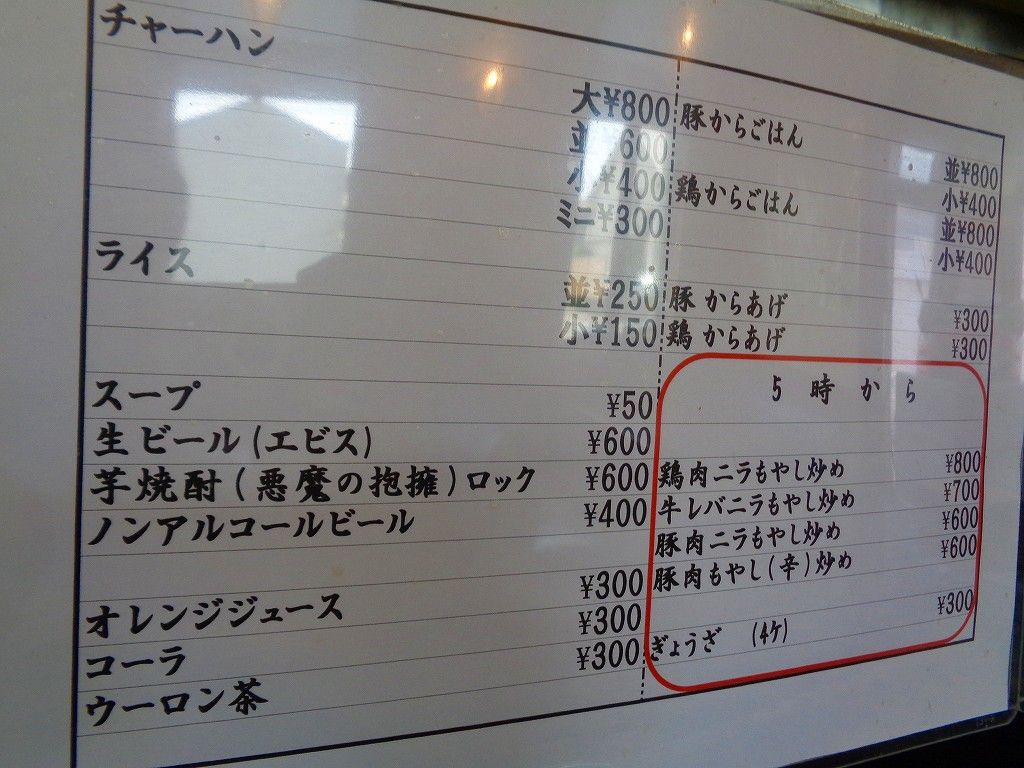 チャーハン
大¥800
並¥600
小¥400
ミニ¥300
ライス
並¥250
小¥150
スープ ¥50
生ビール(エビス) ¥600
芋焼酎(悪魔の抱擁)ロック ¥600
ノンアルコールビール ¥400
オレンジジュース ¥300
コーラ ¥300
ウーロン茶 ¥300
豚からごはん
並¥800
小¥400
鶏からごはん
並¥800
小¥400
豚からあげ ¥300
鶏からあげ ¥300
5時から
鶏肉ニラもやし炒め ¥800
牛レバニラもやし炒め ¥700
豚肉ニラもやし炒め ¥600
豚肉もやし(辛)炒め ¥600
ぎょうざ (4ケ) ¥300